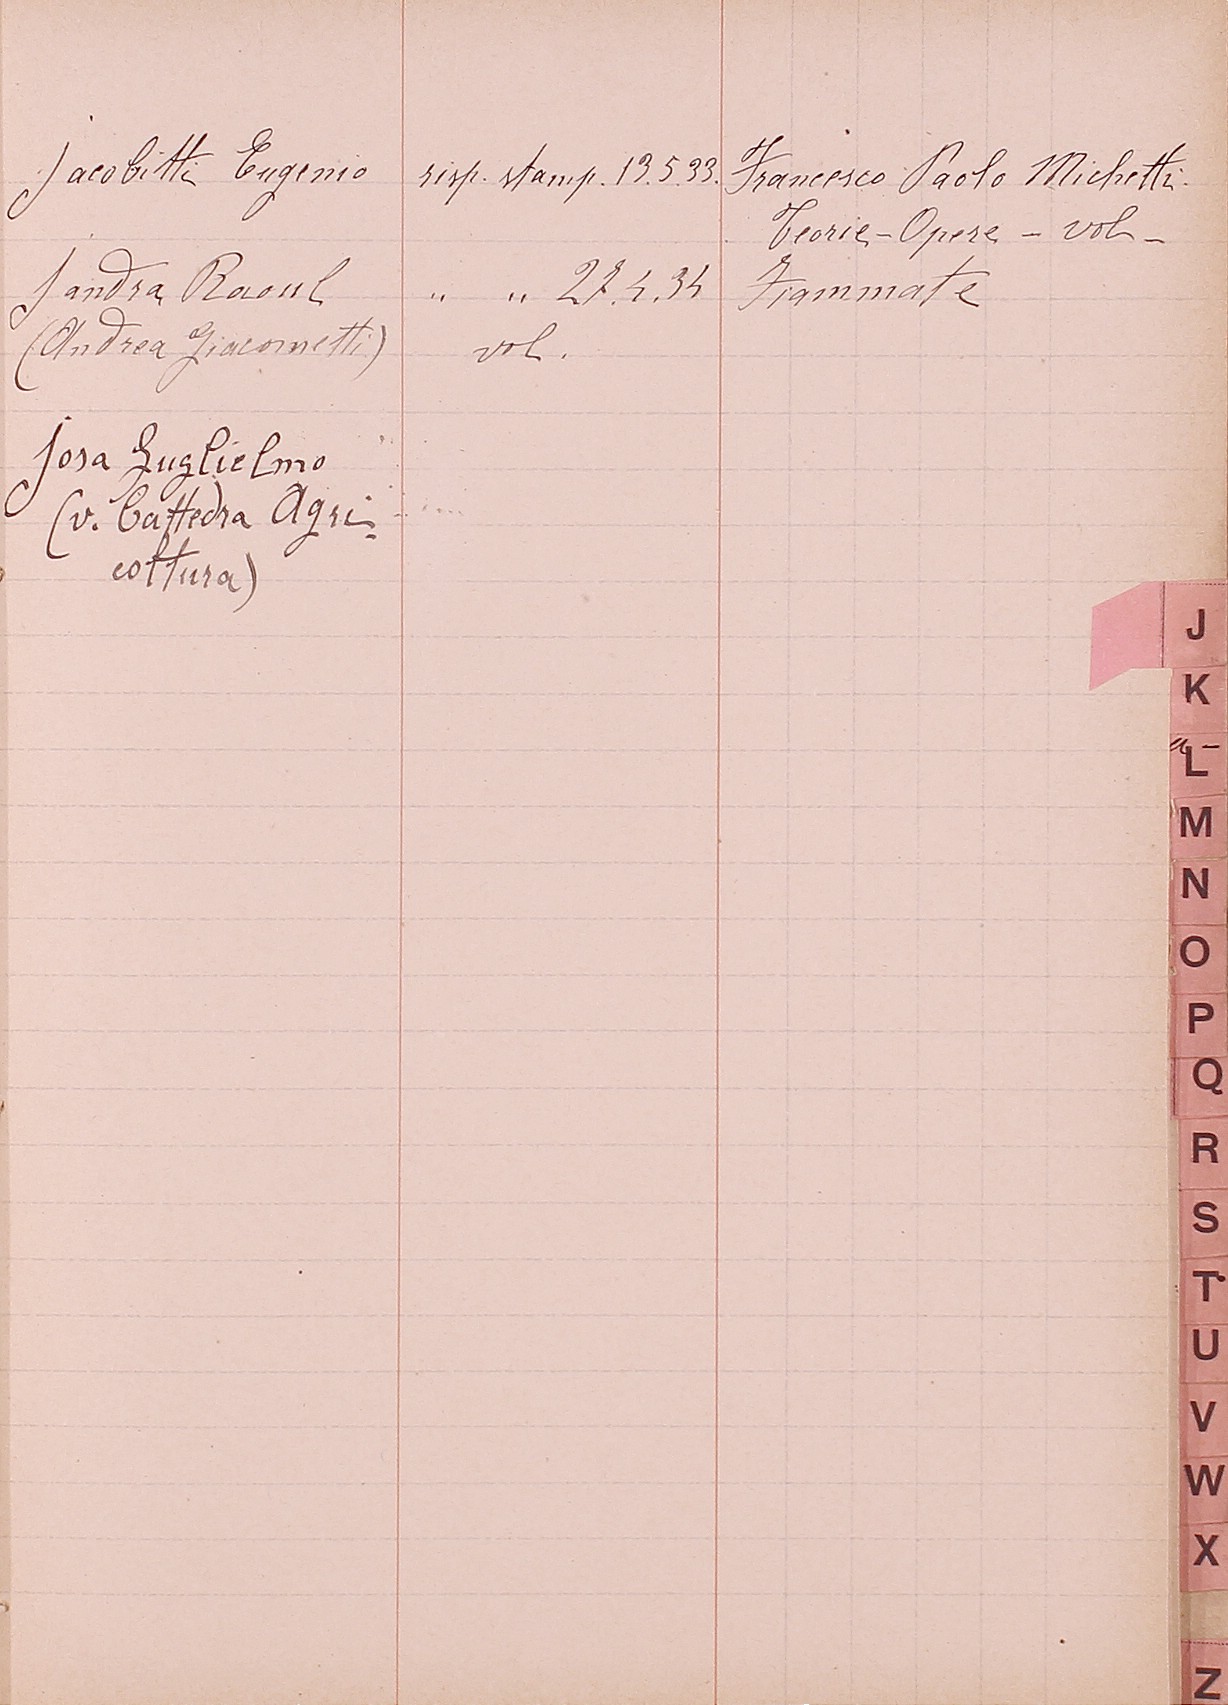 Jacobitti Eugenio risp. stamp. 13.5.33. Francesco Paolo Michetti.
Teorie - Opere - vol -
Jandra Raoul " " 27.4.34 Fiammate
(Andrea Giacometti) vol.
Josa Guglielmo
(v. Cattedra Agri-
coltura)
J
K
a -
L
M
N
O
P
Q
R
S
T
U
V
W
X
Z